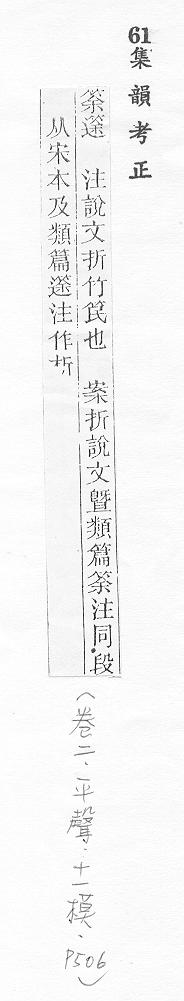 61集韻考正
筡𥳕　注說文折竹笢也　案折說文曁類篇筡注同段
从宋本及類篇𥳕注作析
(卷二.平聲.十一模.P506)